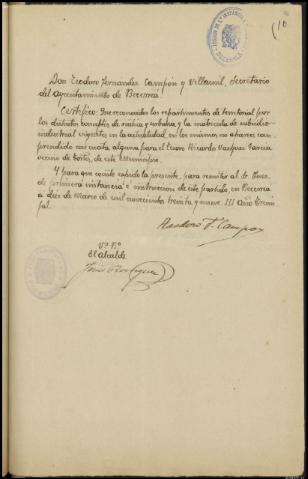 (10
Don Teodoro Fernandez Campón y Villamil, Secretario
del Ayuntamiento de Becerreá
Certifico: Que reconocidos los repartimientos de territorial por
los distintos conceptos de rústica y urbana, y la matrícula de subsidio
industrial vigentes en la actualidad, en los mismos no aparece com-
prendido con cuota alguna para el Tesoro Ricardo Vazquez Garcia
vecino de Tortes, de este Municipio.
Y para que conste expido la presente, para remitir al Sr. Juez
de primera instancia é instrucción de este partido en Becerreá
a diez de Marzo de mil novecientos treinta y nueve. III Año Triun-
fal.
Teodoro F. Campon
Vº Bº
El Alcalde